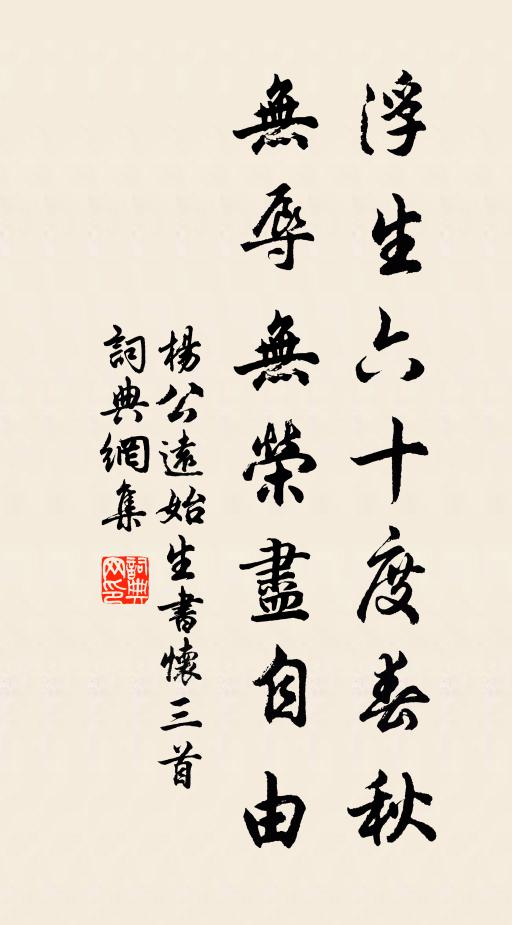 浮生六十度春秋
無辱無榮盡自由
楊公遠始生書懷三首
詞典網集
詞典網印